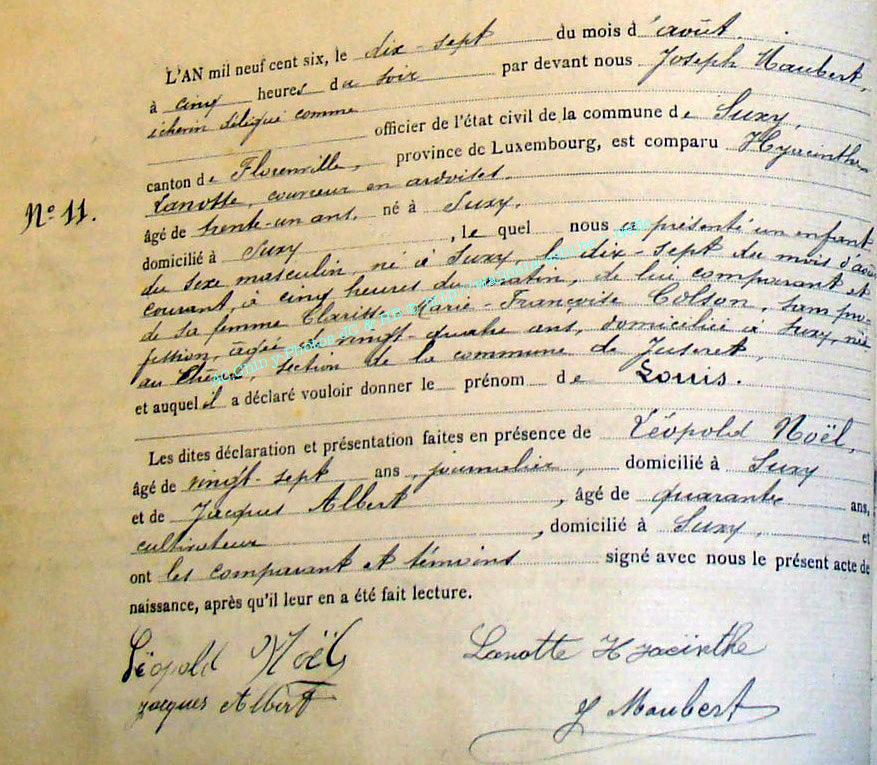 L'AN mil neuf cent six, le dix-sept du mois d'août.
à cinq heures du soir par devant nous Joseph Maubert,
échevin délégué comme
officier de l'état civil de la commune de Suxy,
canton de Florenville, province de Luxembourg, est comparu Hyacinthe
Nº 11.
Lanotte, couvreur en ardoises.
âgé de trente-un ans, né à Suxy.
domicilié à Suxy, le quel nous a présenté un enfant
du sexe masculin, né à Suxy, le dix-sept du mois d'août
courant, à cinq heures du matin, de lui comparant et
de sa femme Clarisse Marie-Françoise Colson, sans pro-
fession, âgée de vingt-quatre ans, domiciliée à Suxy, née
au Chêne, section de la commune de Juseret,
et auquel il a déclaré vouloir donner le prénom de Louis.
Les dites déclaration et présentation faites en présence de Léopold Noël,
âgé de vingt-sept ans, journalier, domicilié à Suxy
et de Jacques Albert, âgé de quarante ans,
cultivateur, domicilié à Suxy, et
ont les comparant et témoins signé avec nous le présent acte de
naissance, après qu'il leur en a été fait lecture.
Léopold Noël Lanotte Hyacinthe
Jacques Albert J Maubert